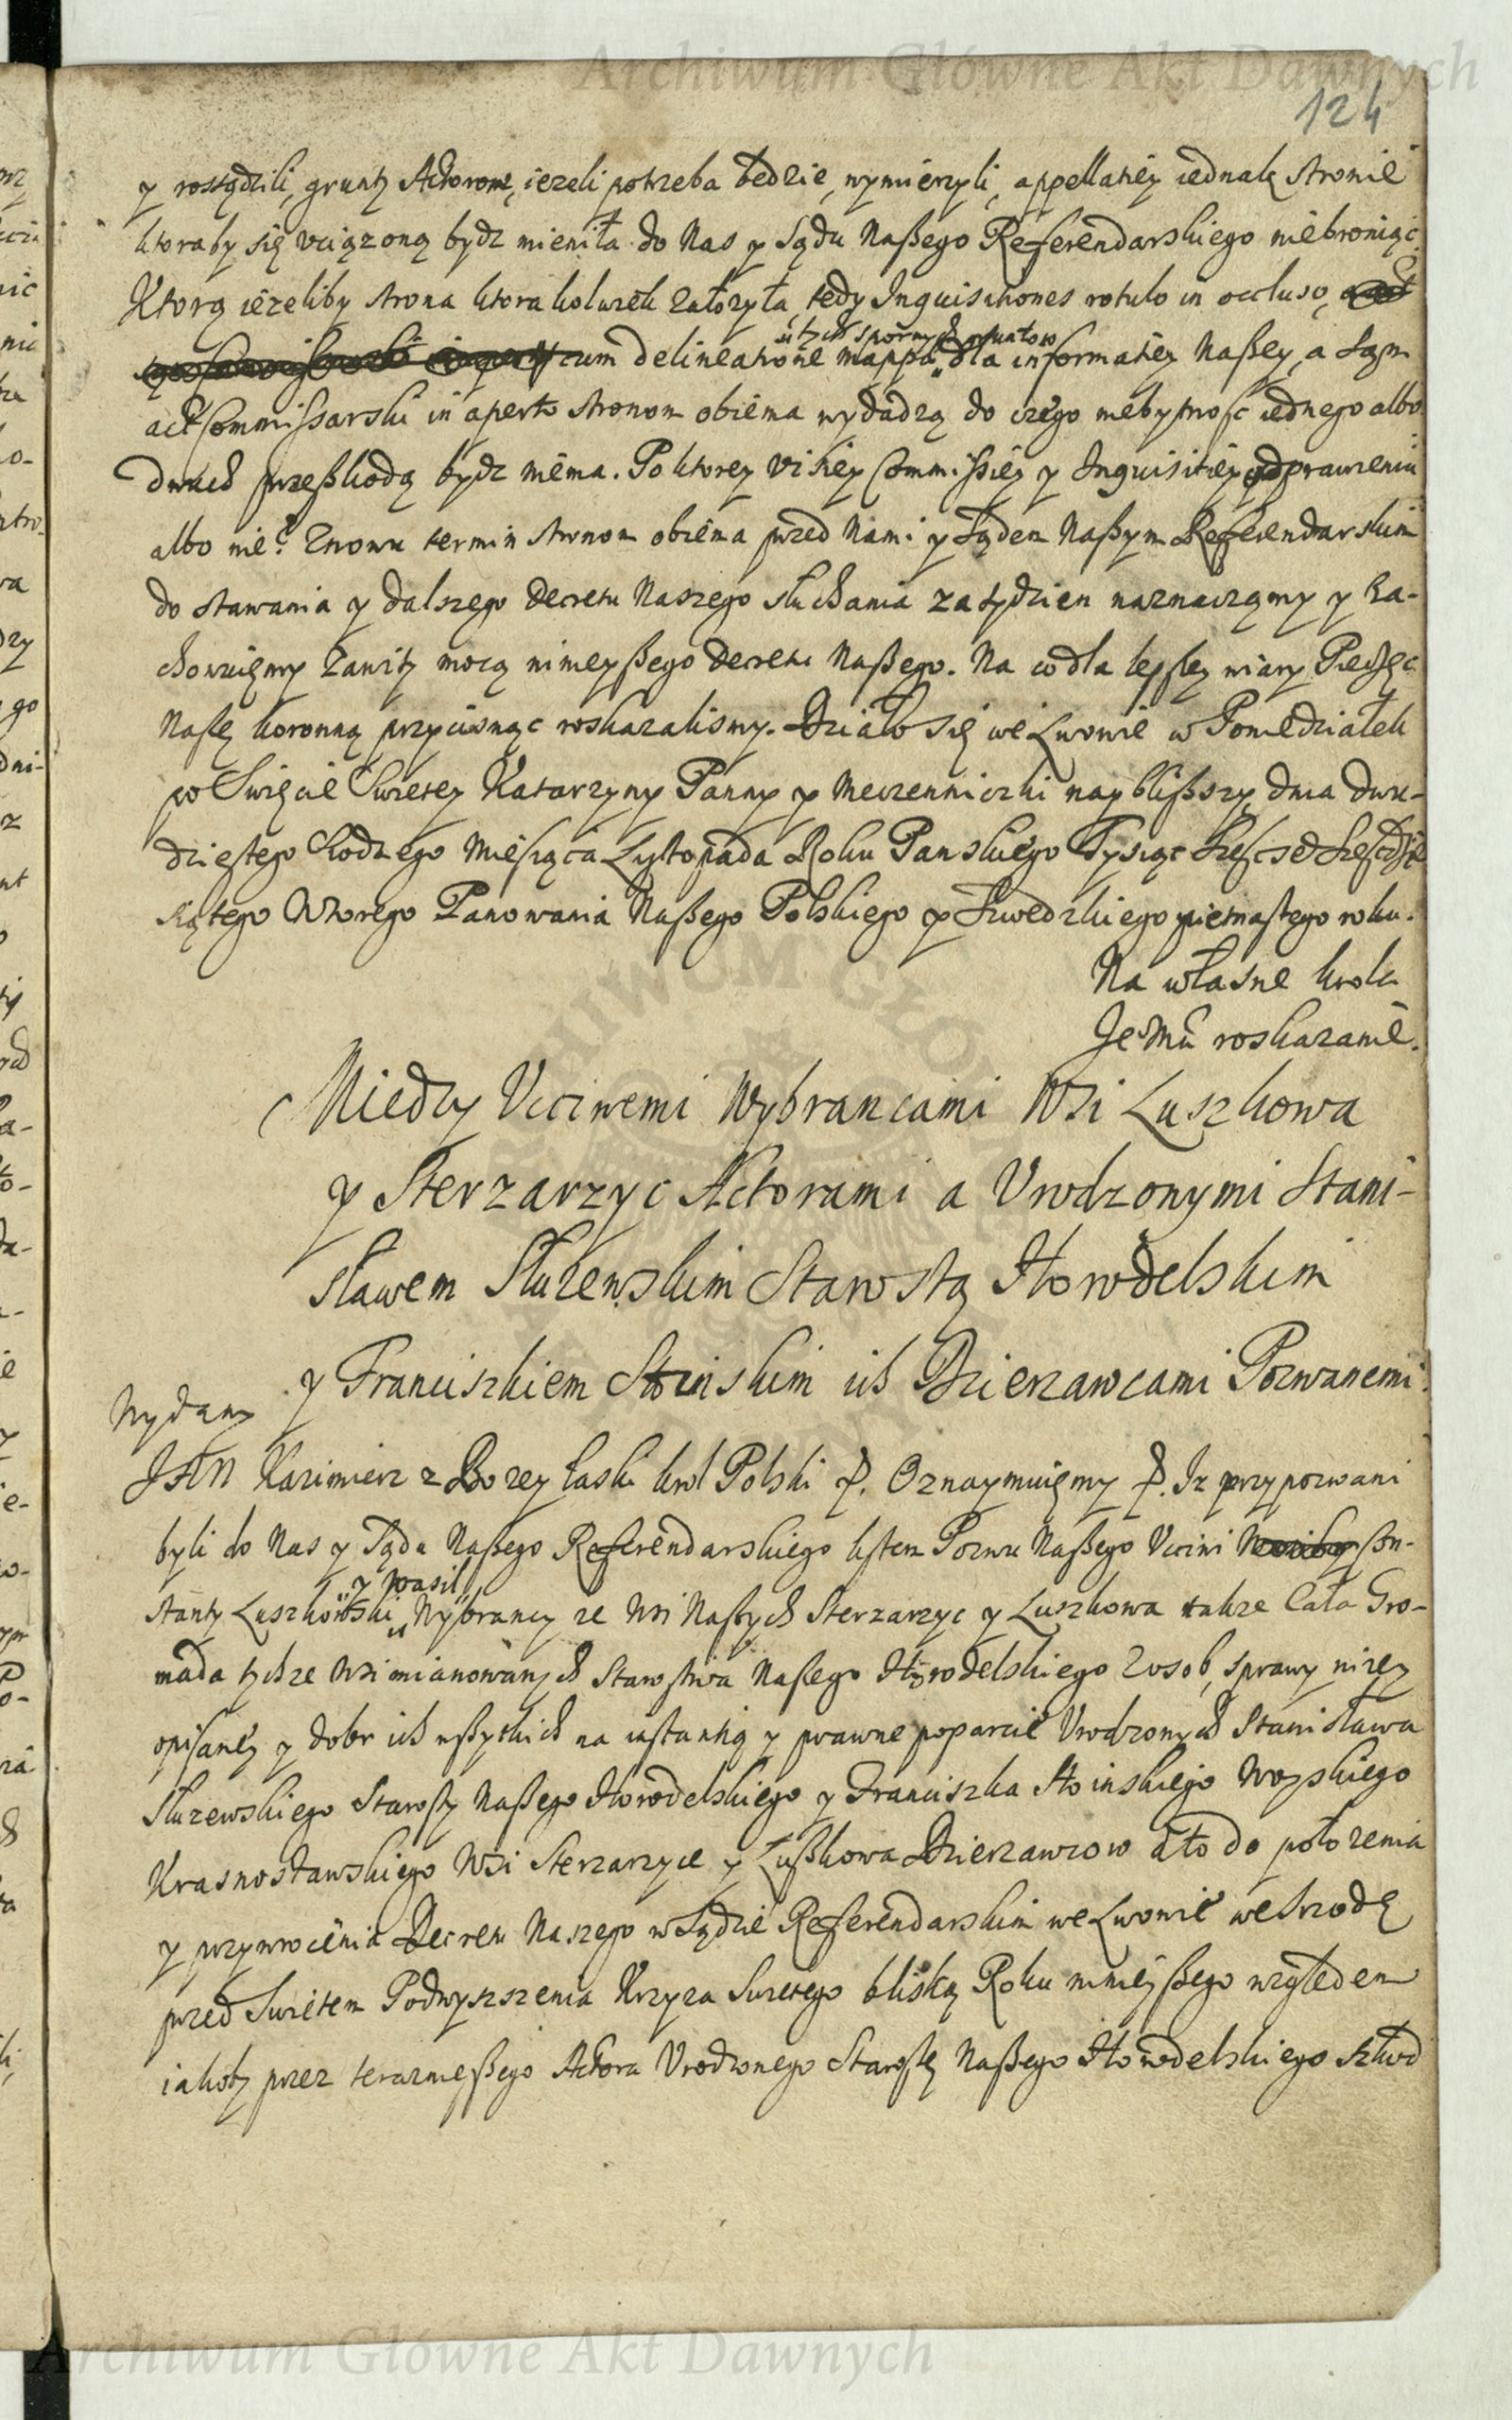 Archiwum Główne Akt Dawnych
124
y rossądzili, grunty Actorowe, iezeli potrzeba będzie, wymierzyli, appellatiey iednak stronie
ktoraby się vciązoną bydz mieniła do Nas y Sądu Naßego Referendarskiego niebroniąc.
Ktorą iezeliby strona ktorakolwiek załozyła, tedy Inquisitiones rotulo in occluso,
cum delineatione mappa tych spornych gruntow dla informatiey Naßey, a sam
act Commissarski in aperto stronom obiema wydadzą do czego niebytnosc iednego albo
dwuch przeßkodą bydz niema. Po ktorey visiey Commißiey y Inquisitiey odprawieniu
albo nie? Znowu termin stronom obiema przed Nami y Sądem Naßym Referendarskim
do stawania y dalszego Decretu Naszego słuchania za tydzien naznaczamy y za-
chowuięmy Zawity mocą ninieyßego Decretu Naßego. Na co dla lepßey wiary Pieczęc
Naßę koronną przycisnąc roskazalismy. Działo się we Lwowie w Poniedziałek
po Swięcie Swietey Katarzyny Panny y Meczenniczki nayblißszy dnia dwu-
dziestego siodmego Miesiąca Lystopada Roku Panskiego Tysiąc Szescsed Szescdzie
siątego Wtorego Panowania Naßego Polskiego y Szwedzkiego pietnastego roku.
Na własne krola
JeoMci roskazanie.
Miedzy Vcciwemi Wybrancami Wsi Luszkowa
y Sterzarzyc Actorami a Vrodzonymi Stani-
sławem Słuzewskim Starostą Horodelskim
y Franciszkiem Stoinskim ich Dzierzawcami Pozwanemi.
Wydany
JAN Kazimierz z Bozey łaski krol Polski &. Oznaymuięmy &. Iz przypozwani
byli do Nas y Sądu Naßego Referendarskiego listem Pozwu Naßego Vcciwi Con-
stanty Luszkowski y Wasil Wybrancy ze Wsi Naßych Sterzarzyc y Luszkowa takze Cała Gro-
mada tychze Wsi mianowanych Starostwa Naßego Horodelskiego z osob, sprawy nizey
opisaney y dobr ich wßytkich na instantią y prawne poparcie Vrodzonych Stanisława
Słuzewskiego Starosty Naßego Horodelskiego y Franciszka Stoinskiego Woyskiego
Krasnostawskiego Wsi Sterzarzyce y Lußkowa Dzierzawcow a to do połozenia
y przywrocenia Decretu Naszego w Sądzie Referendarskim we Lwowie we Srzodę
przed Swietem Podwyszszenia Krzyza Swietego bliską Roku ninieyßego względem
iakoby przez terazneyßego Actora Vrodzonego Starostę Naßego Horodelskiego szkod
Archiwum Główne Akt Dawnych